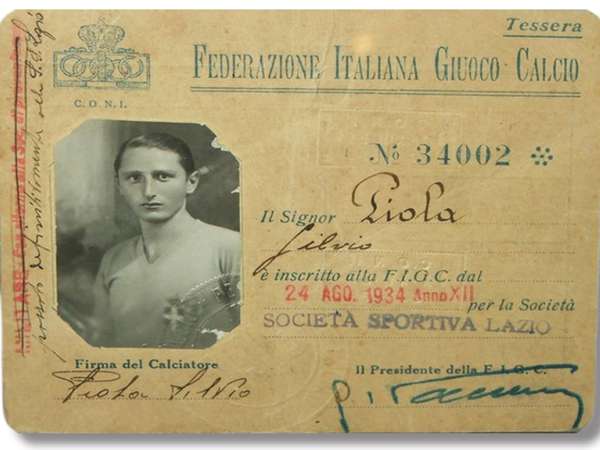 Tessera
FEDERAZIONE ITALIANA GIUOCO CALCIO
C.O.N.I.
No 34002
Il Signor Piola
Silvio
è inscritto alla F.I.G.C. dal
24 AGO. 1934 Anno XII
per la Società
SOCIETÀ SPORTIVA LAZIO
Firma del Calciatore
Piola Silvio
Il Presidente della F.I.G.C.